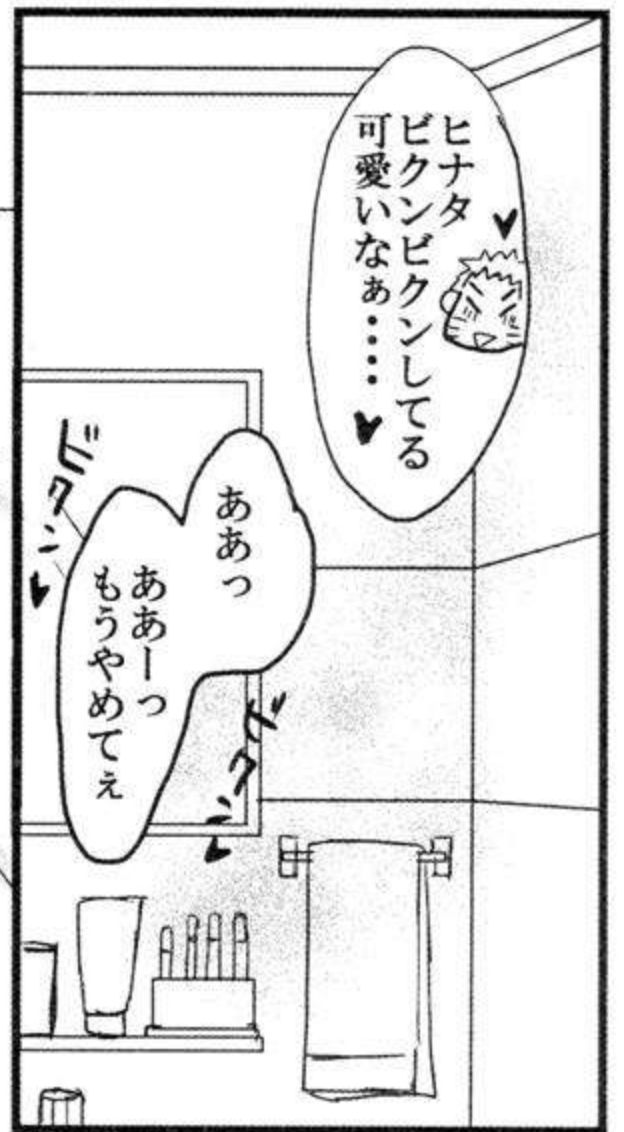 ヒナタ
ビクンビクンしてる
可愛いなぁ・・・・♥
ああっ
ああーっ
もうやめてぇ
ビクン♥
ビクン♥